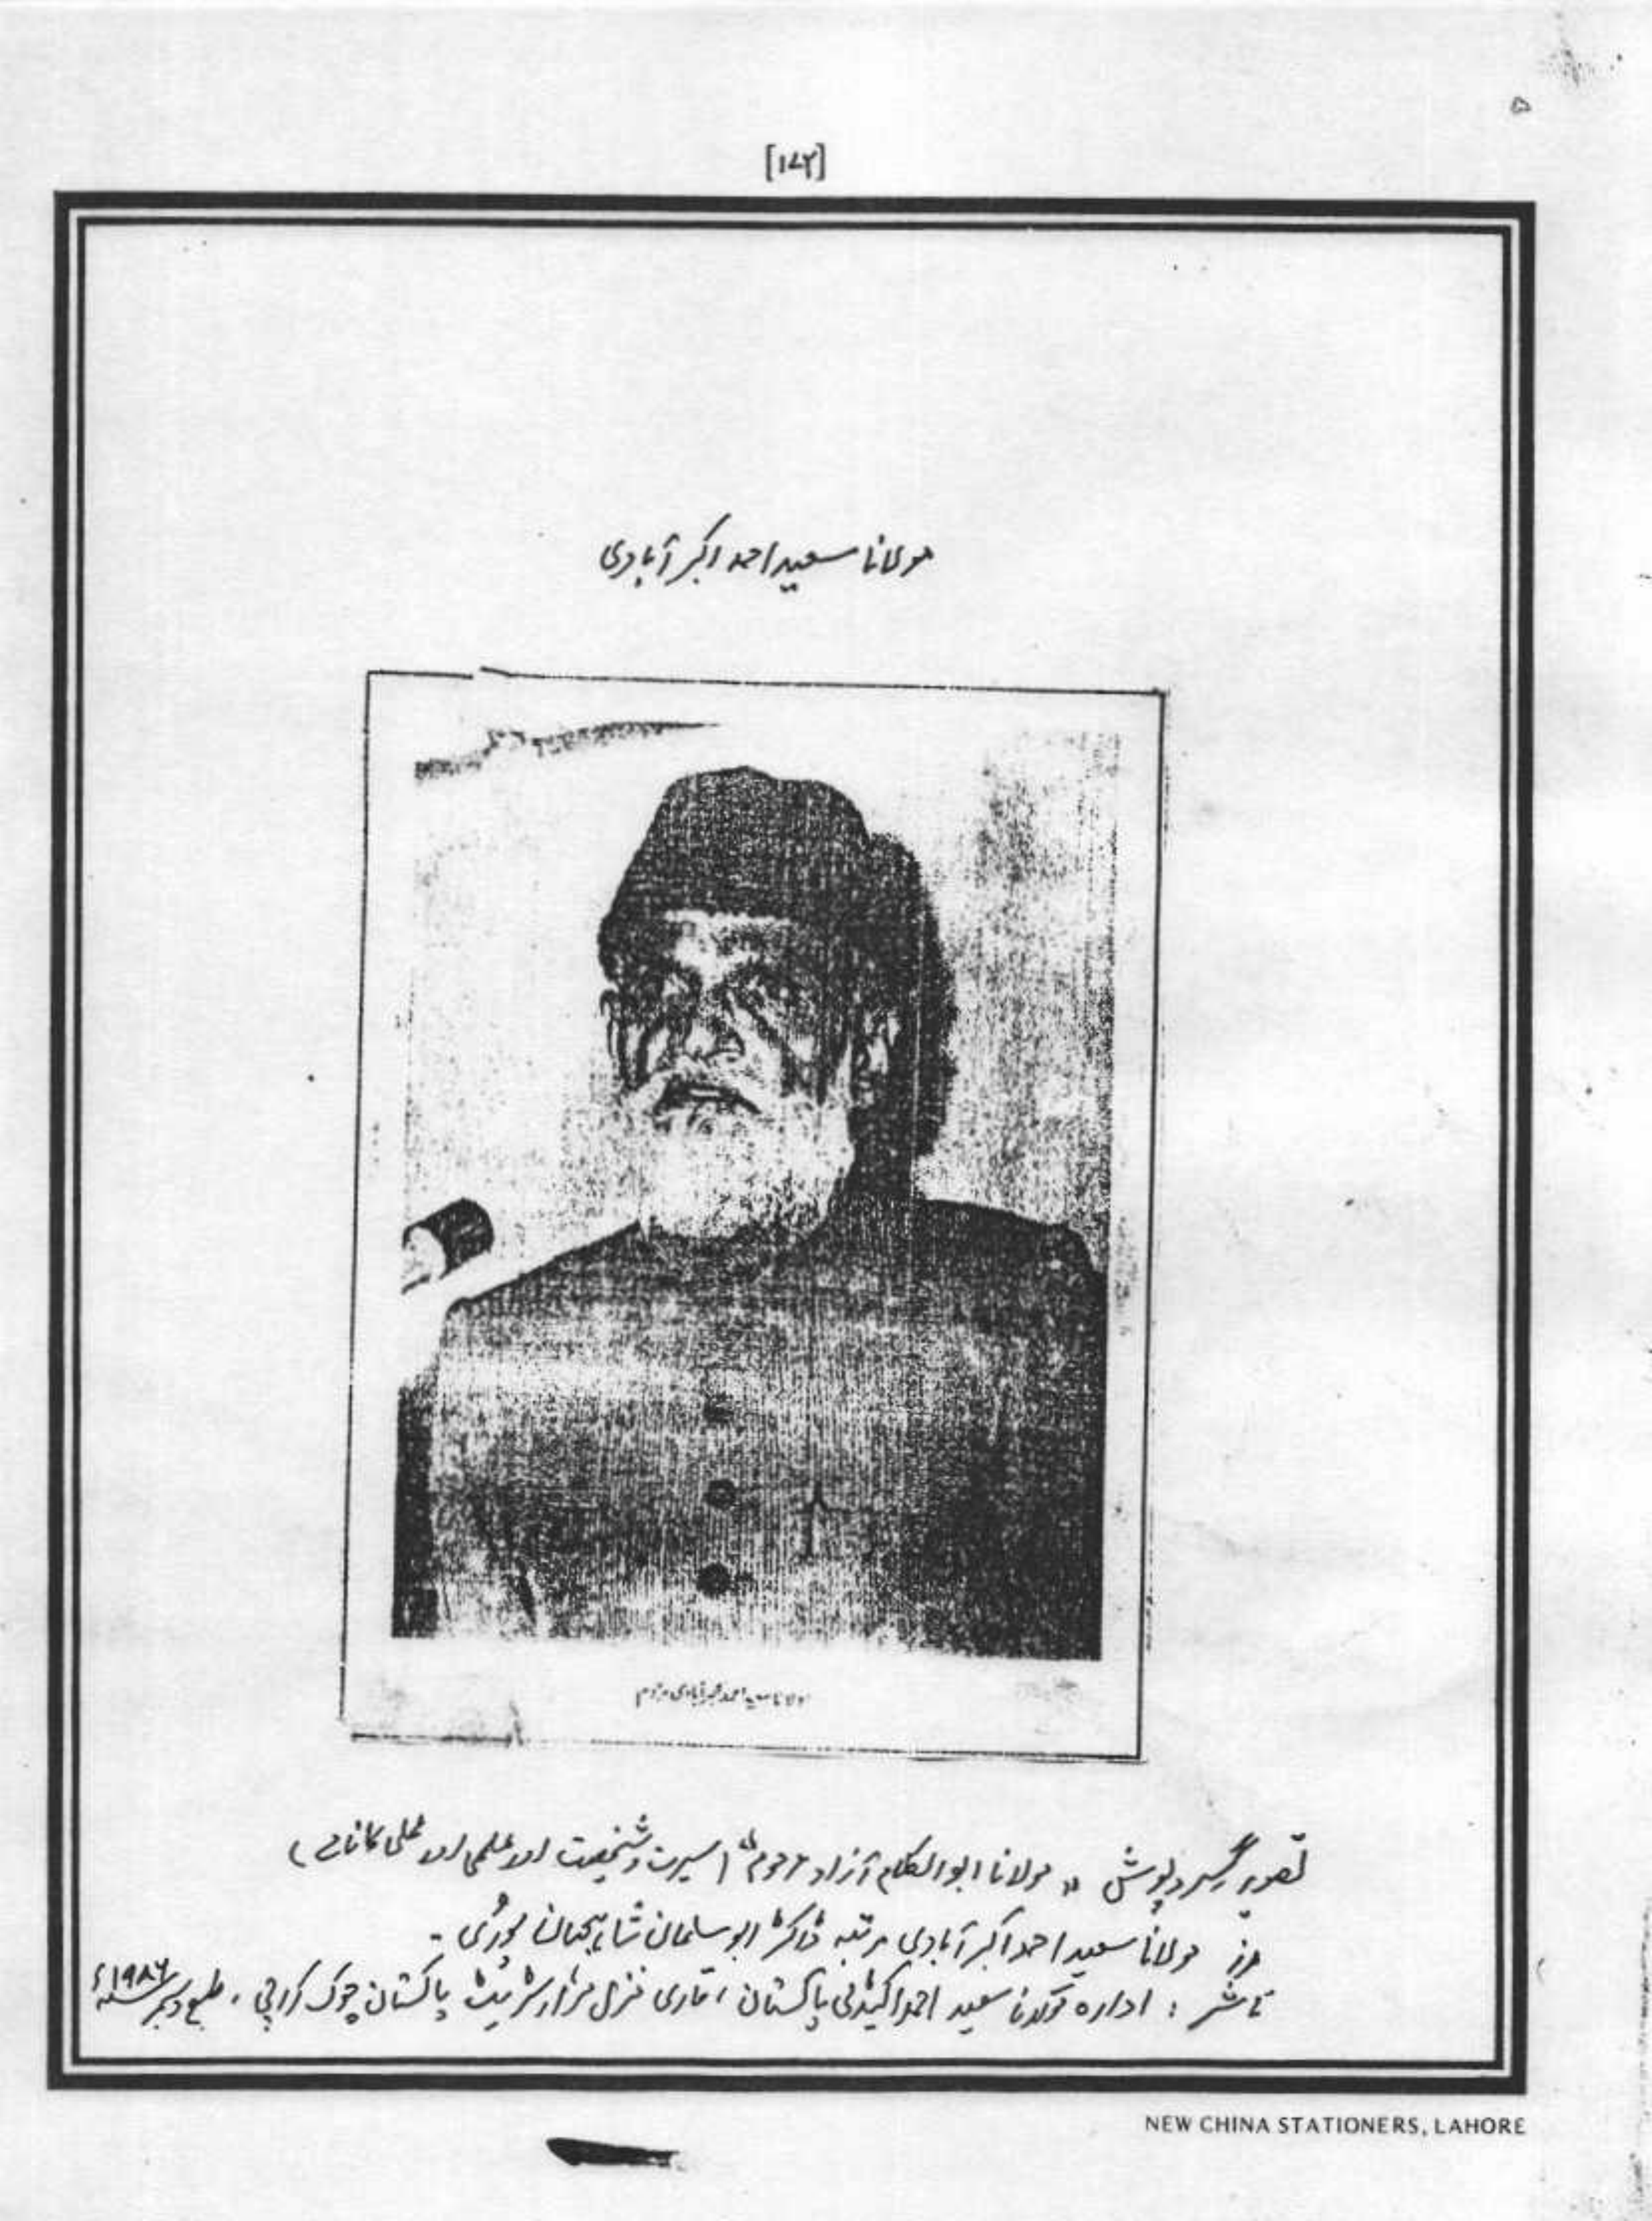 [۱۷۲]
مولانا سعید احمد اکبر آبادی
مولانا سعید احمد اکبر آبادی مرحوم
تصویر گرد پوش " مولانا ابوالکلام آزاد مرحوم " (سیرت و شخصیت اور علمی اور عملی کارنامے)
از مولانا سعید احمد اکبر آبادی مرتبہ ڈاکٹر ابو سلمان شاہجہان پوری ۔
ناشر : ادارہ مولانا سعید احمد اکیڈمی پاکستان ، قاری منزل پاکستان چوک کراچی ، طبع دسمبر ۱۹۸۶ء
NEW CHINA STATIONERS, LAHORE